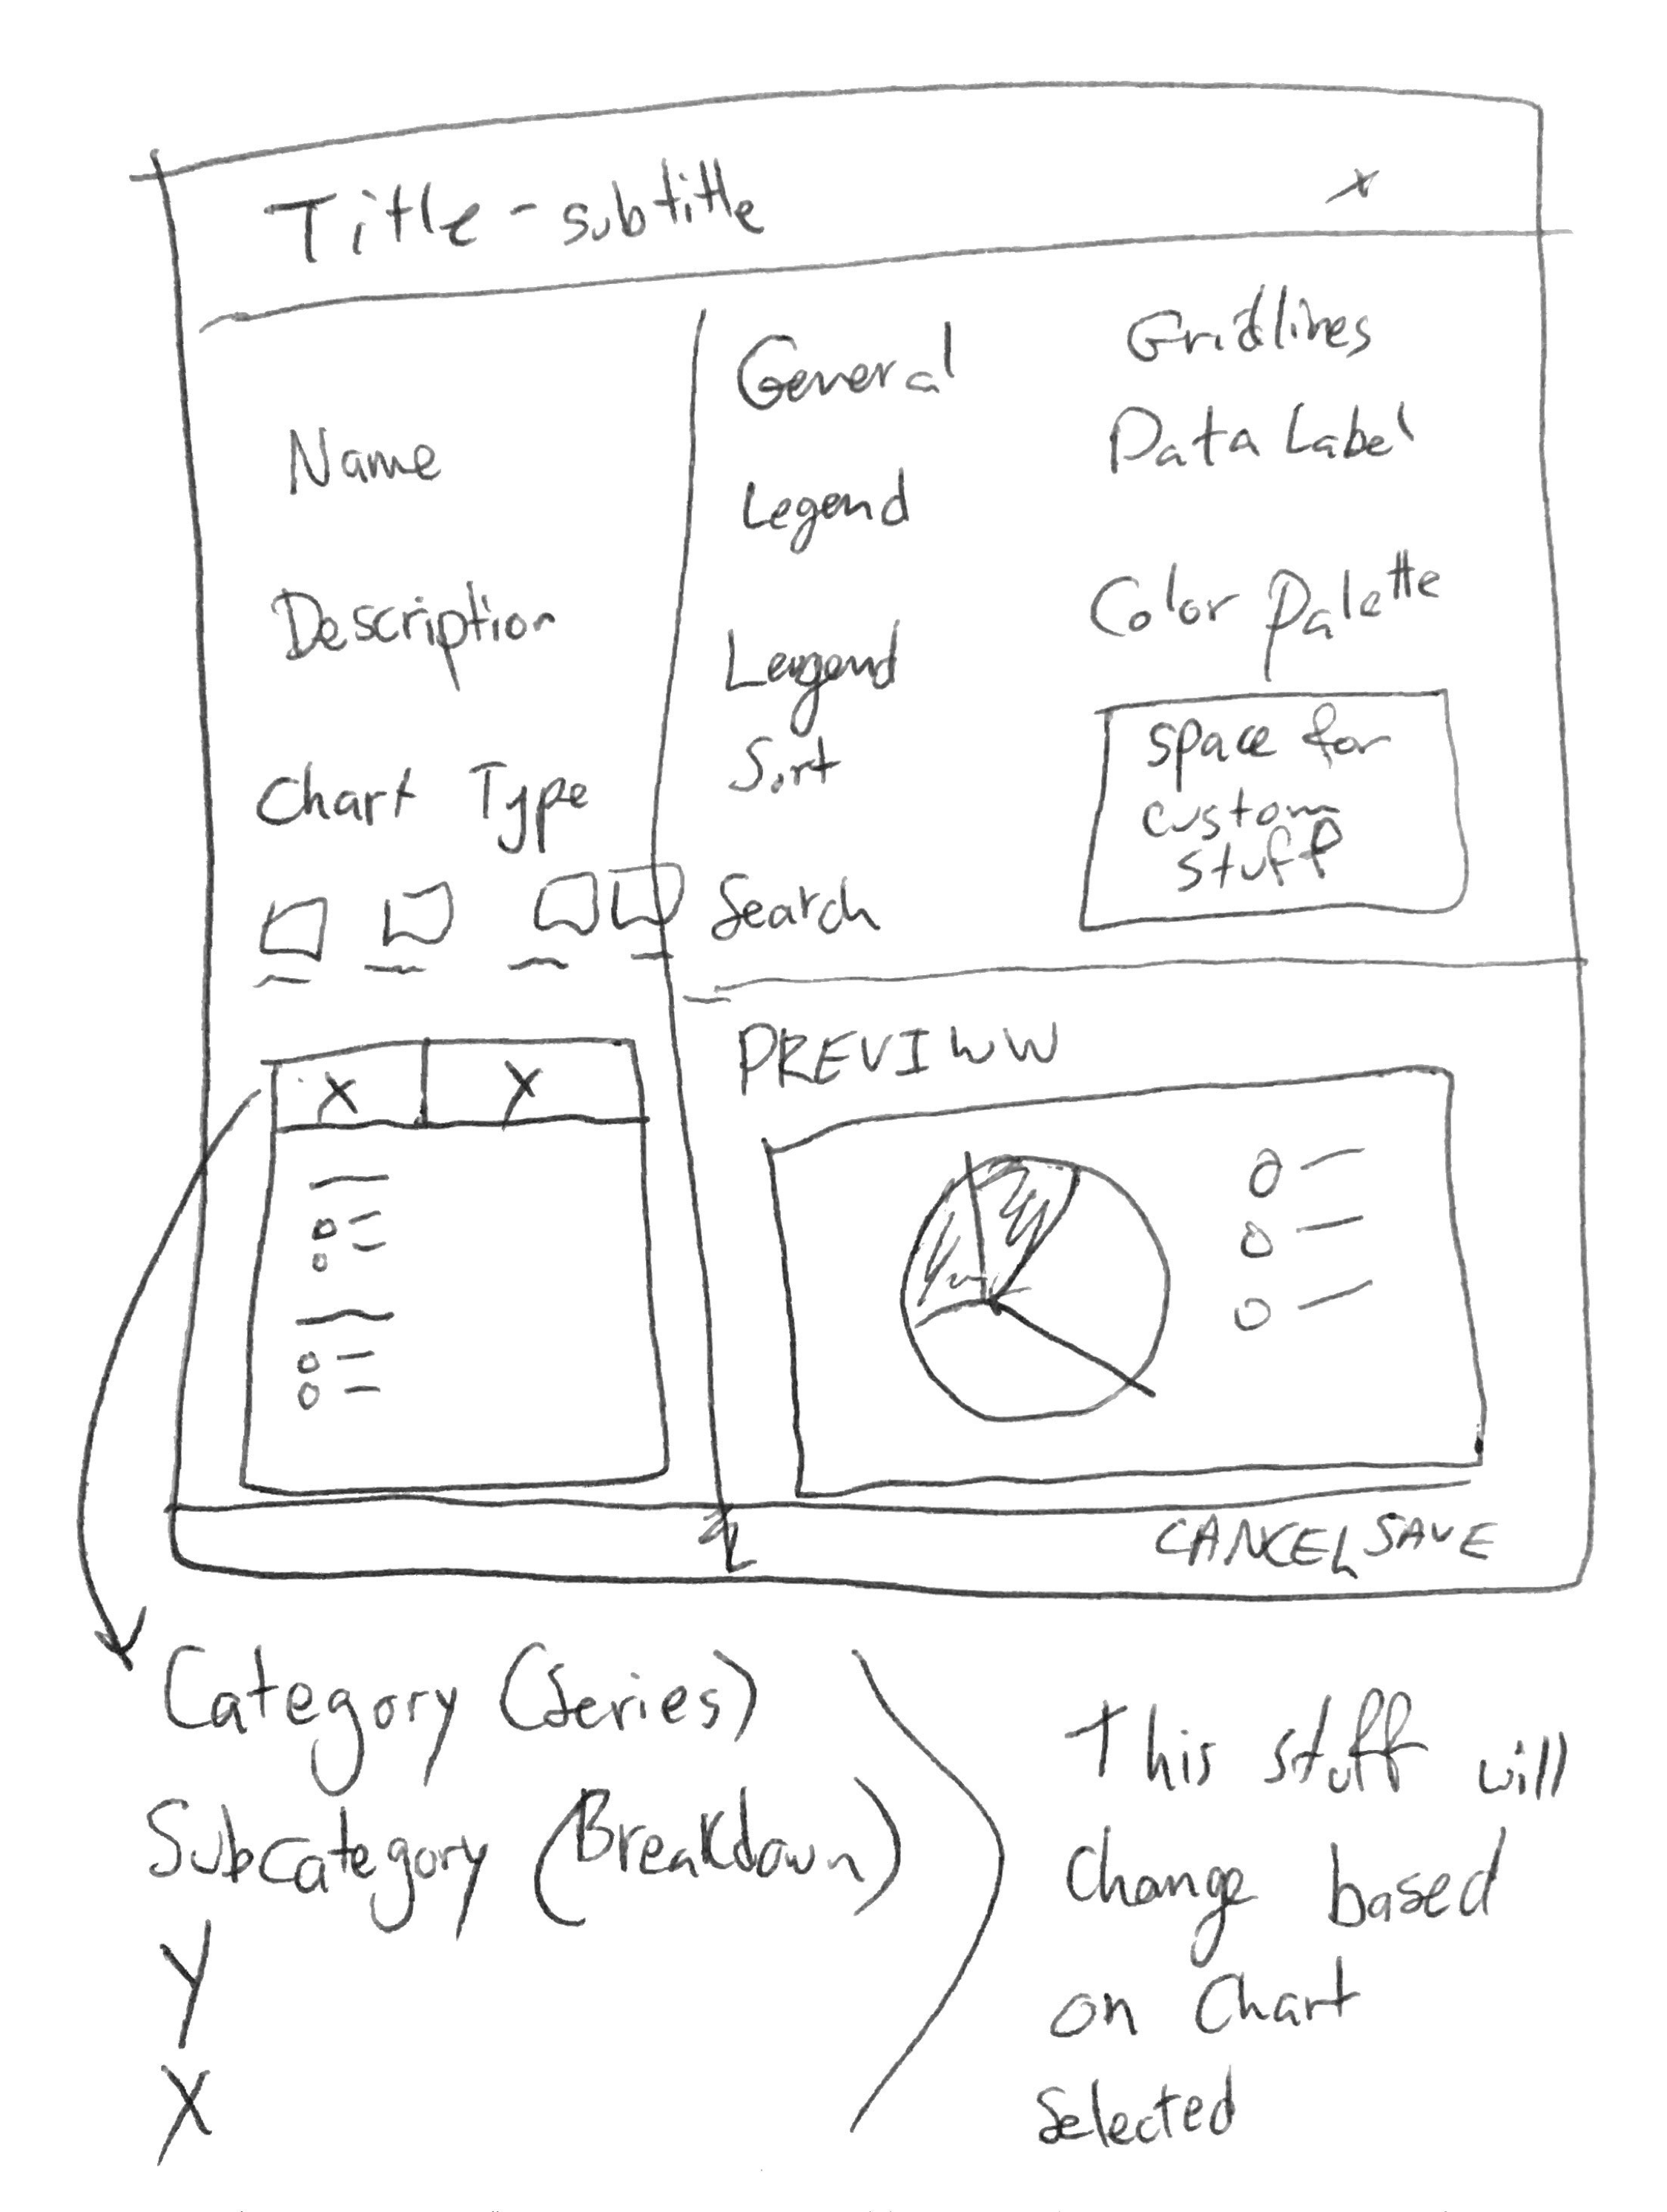 Title - subtitle x
Name
Description
Chart Type
X Y
General
Legend
Leygend
Sort
Search
Gridlines
Data Label
Color Palette
space for
custom
stuff
PREVIWW
CANCEL SAVE
Category (Series)
Subcategory (Breakdown)
Y
X
This stuff will
change based
on Chart
Selected